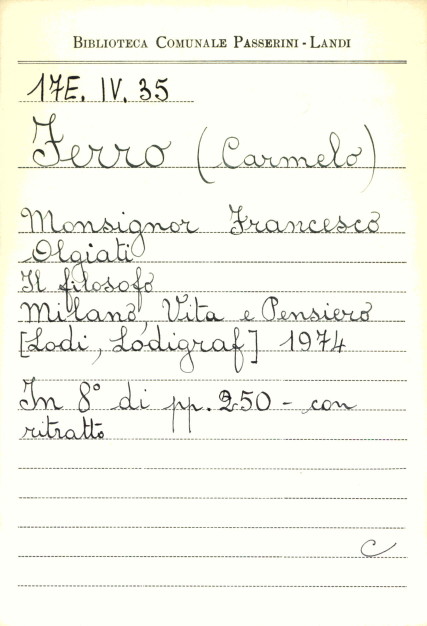 BIBLIOTECA COMUNALE PASSERINI - LANDI
17E. IV. 35
Ferro (Carmelo)
Monsignor Francesco
Olgiati
Il filosofo
Milano, Vita e Pensiero
[Lodi, Lodigraf] 1974
In 8° di pp. 250 - con
ritratto
C